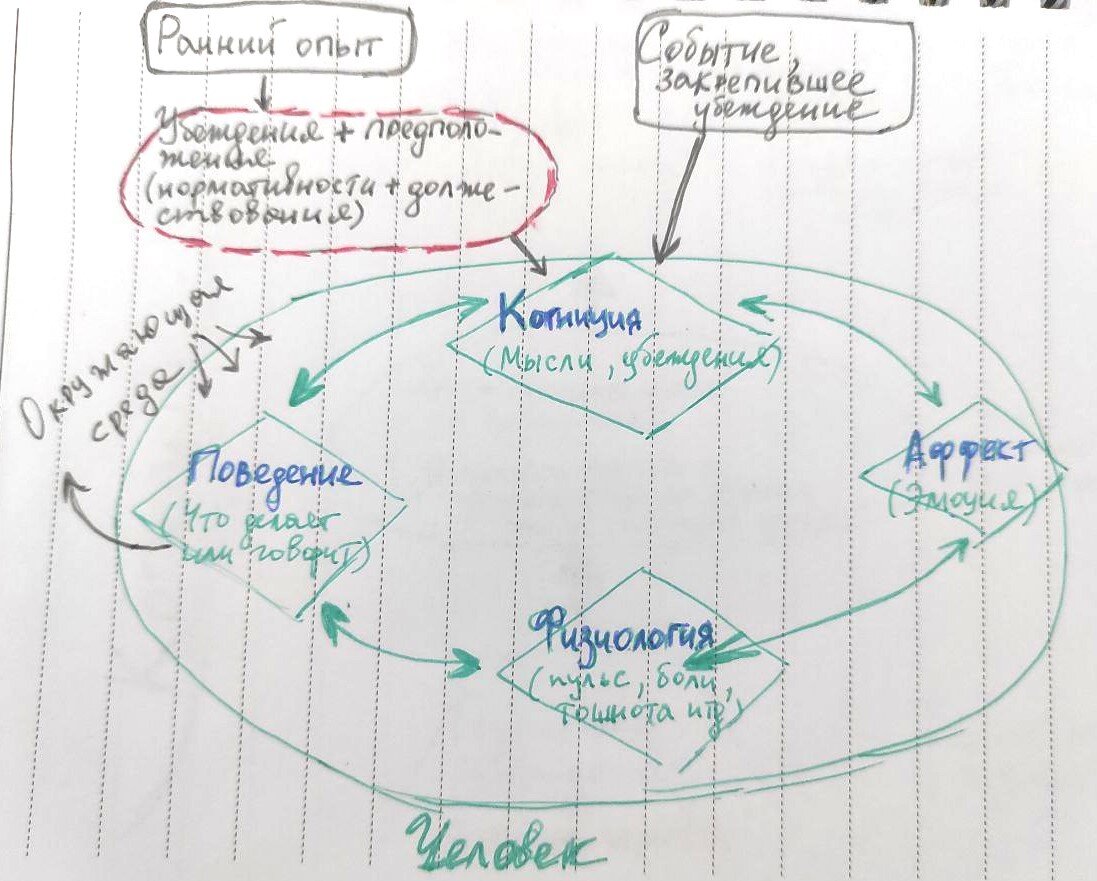 Ранний опыт
Событие,
закрепившее
убеждение
Убеждения + предполо-
жения
(нормативности + долже-
ствования)
Окружающая
среда
Когниция
(Мысли, убеждения)
Поведение
(Что делает
или говорит)
Аффект
(Эмоция)
Физиология
(пульс, боли,
тошнота итд)
Человек